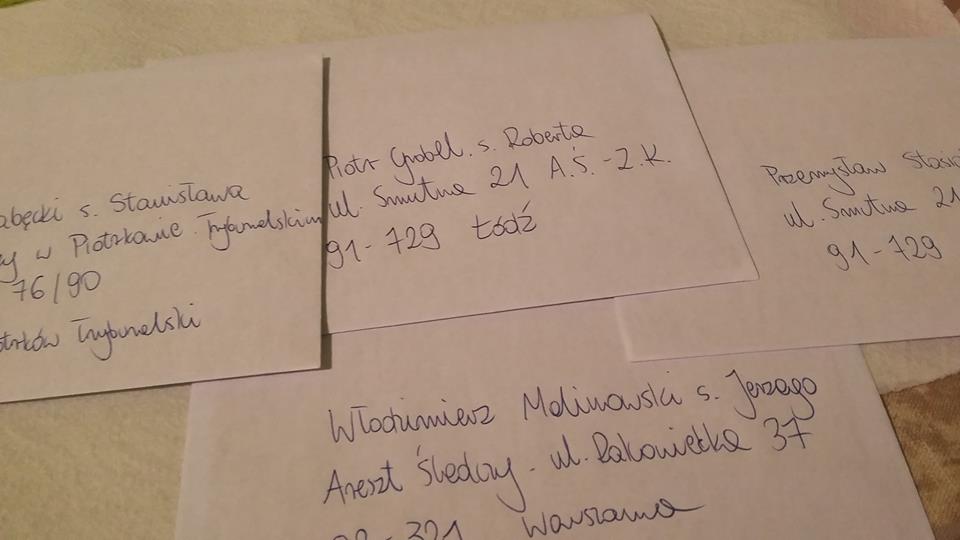 s. Stanisława
w Piotrkowie Trybunelskim
76/90
Trybunelski
Piotr Grobel. s. Roberta
ul. Smutna 21 A.Ś.-Z.K.
91-729 Łódź
Przemysław
ul. Smutna 21
91-729
Włodzimierz Malinowski s. Jerzego
Areszt Śledczy - ul. Rakowiecka 37
Warszawa